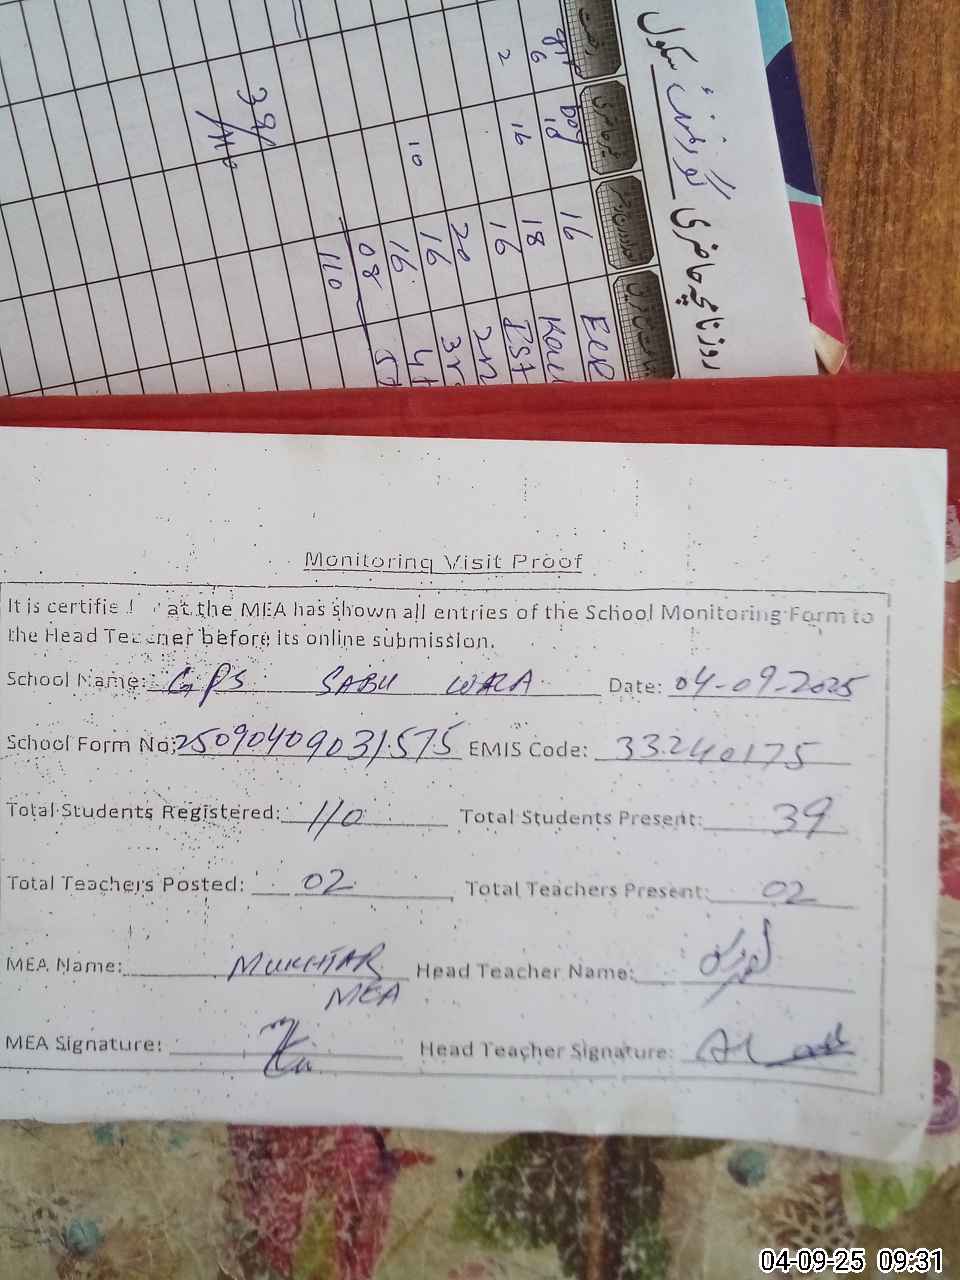 روزنامچہ حاضری گورنمنٹ سکول
ECE 16
18 10 6
1st 16 16 2
20
16
16 10
08
110
39/110
Monitoring Visit Proof
at the MEA has shown all entries of the School Monitoring Form to
the Head Teacher before its online submission.
School Name: GPS SABU WALA Date: 04-09-2025
School Form No: 25090409031575 EMIS Code: 33240175
Total Students Registered: 110 Total Students Present: 39
Total Teachers Posted: 02 Total Teachers Present: 02
MEA Name: MUKHTAR Head Teacher Name:
MEA
MEA Signature: Head Teacher Signature:
04-09-25 09:31